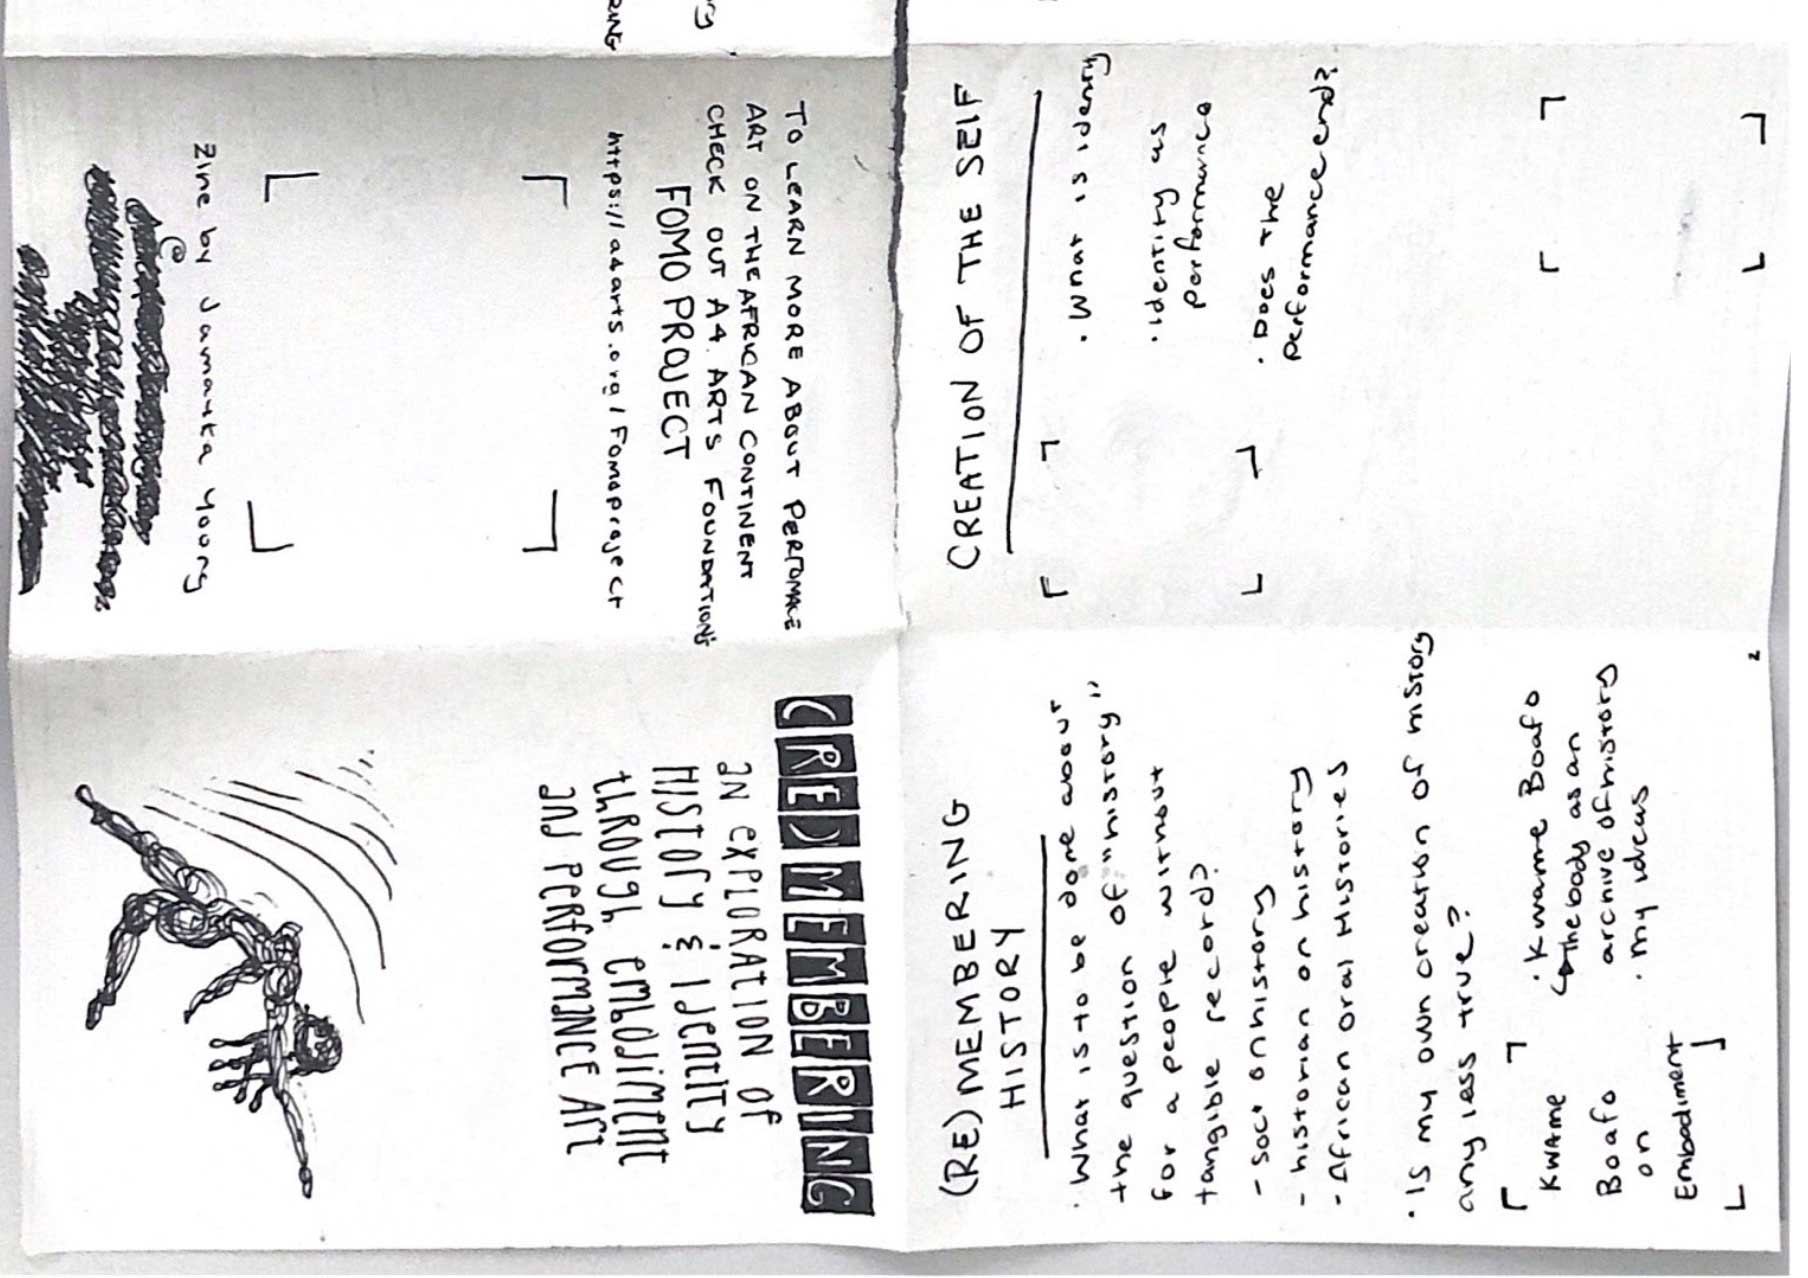 (RE)MEMBERING
AN EXPLORATION OF
HISTORY & IDENTITY
THROUGH EMBODIMENT
AND PERFORMANCE ART
TO LEARN MORE ABOUT PERFOMANCE
ART ON THE AFRICAN CONTINENT
CHECK OUT A4 ARTS FOUNDATION's
FOMO PROJECT
https://a4arts.org/Fomoproject
Zine by Jamanta Young
@
(RE)MEMBERING
HISTORY
· What is to be done about
the question of "history"
for a people without
tangible record?
- soc' on history
- historian on history
- African oral Histories
· Is my own creation of history
any less true?
KWAme
Boafo
on
Embodiment
· Kwame Boafo
↳ the body as an
archive of history
· my ideas
2
CREATION OF THE SELF
· What is idenity
· identity as
performance
· Does the
performance end?
RING